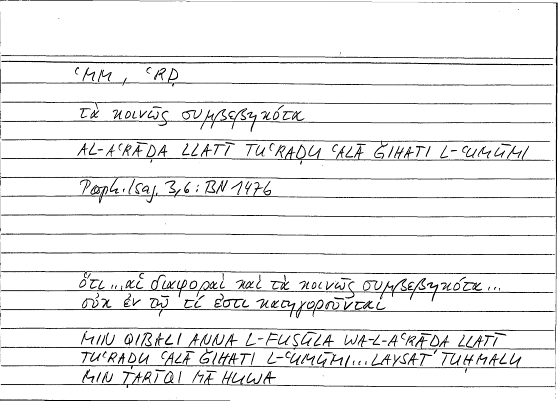 ʿMM, ʿRḌ
τὰ κοινῶς συμβεβηκότα
AL-AʿRĀḌA LLATĪ TUʿRAḌU ʿALĀ ĞIHATI L-ʿUMŪMI
Porph. Isag. 3,6 : BN 147b
ὅτι...αἱ διαφοραὶ καὶ τὰ κοινῶς συμβεβηκότα...
οὐκ ἐν τῷ τί ἐστι κατηγοροῦνται
MIN QIBALI ANNA L-FUṢŪLA WA-L-AʿRĀḌA LLATĪ
TUʿRAḌU ʿALĀ ĞIHATI L-ʿUMŪMI...LAYSAT TUḤMALU
MIN ṬARĪQI MĀ HUWA